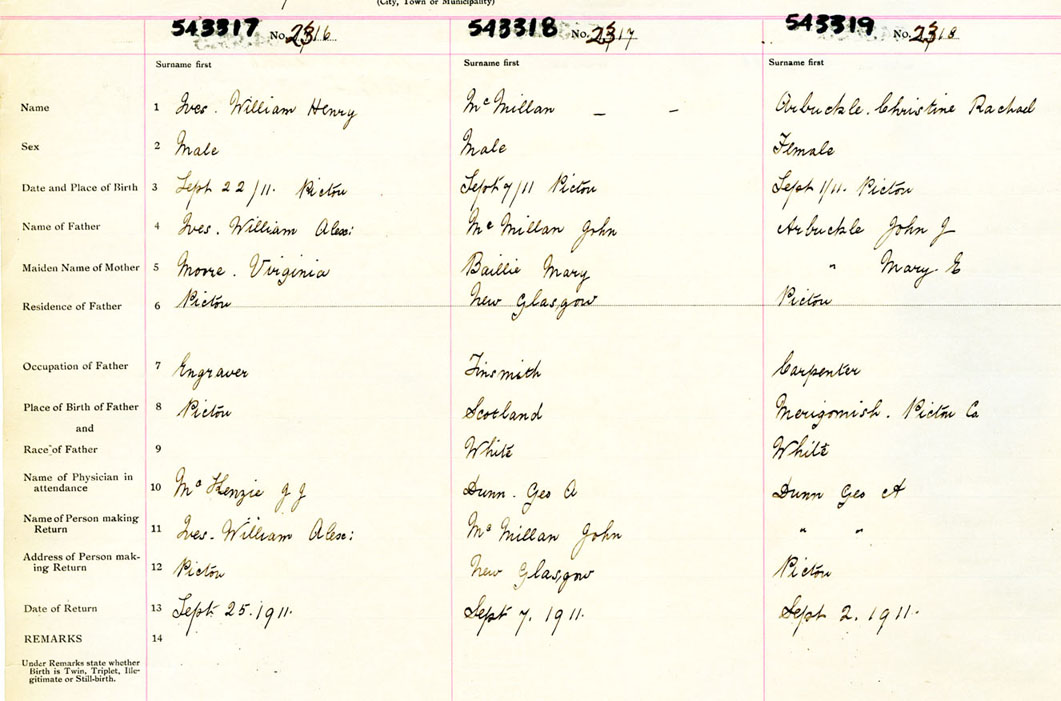 (City, Town or Municipality)
543317 No. 2316 543318 No. 2317 543319 No. 2318
Surname first Surname first Surname first
Name 1 Ives. William Henry McMillan — — Arbuckle. Christine Rachael
Sex 2 Male Male Female
Date and Place of Birth 3 Sept 22/11. Pictou Sept 7/11 Pictou Sept 1/11. Pictou
Name of Father 4 Ives. William Alex: McMillan John Arbuckle John J
Maiden Name of Mother 5 Moore. Virginia Baillie Mary " Mary E
Residence of Father 6 Pictou New Glasgow Pictou
Occupation of Father 7 Engraver Tinsmith Carpenter
Place of Birth of Father 8 Pictou Scotland Merigomish. Pictou Co
and
Race of Father 9 White White
Name of Physician in
attendance 10 McKenzie J J Dunn. Geo A Dunn Geo A
Name of Person making
Return 11 Ives. William Alex: McMillan John " "
Address of Person mak-
ing Return 12 Pictou New Glasgow Pictou
Date of Return 13 Sept 25. 1911. Sept 7. 1911. Sept 2. 1911.
REMARKS 14
Under Remarks state whether
Birth is Twin, Triplet, Ille-
gitimate or Still-birth.